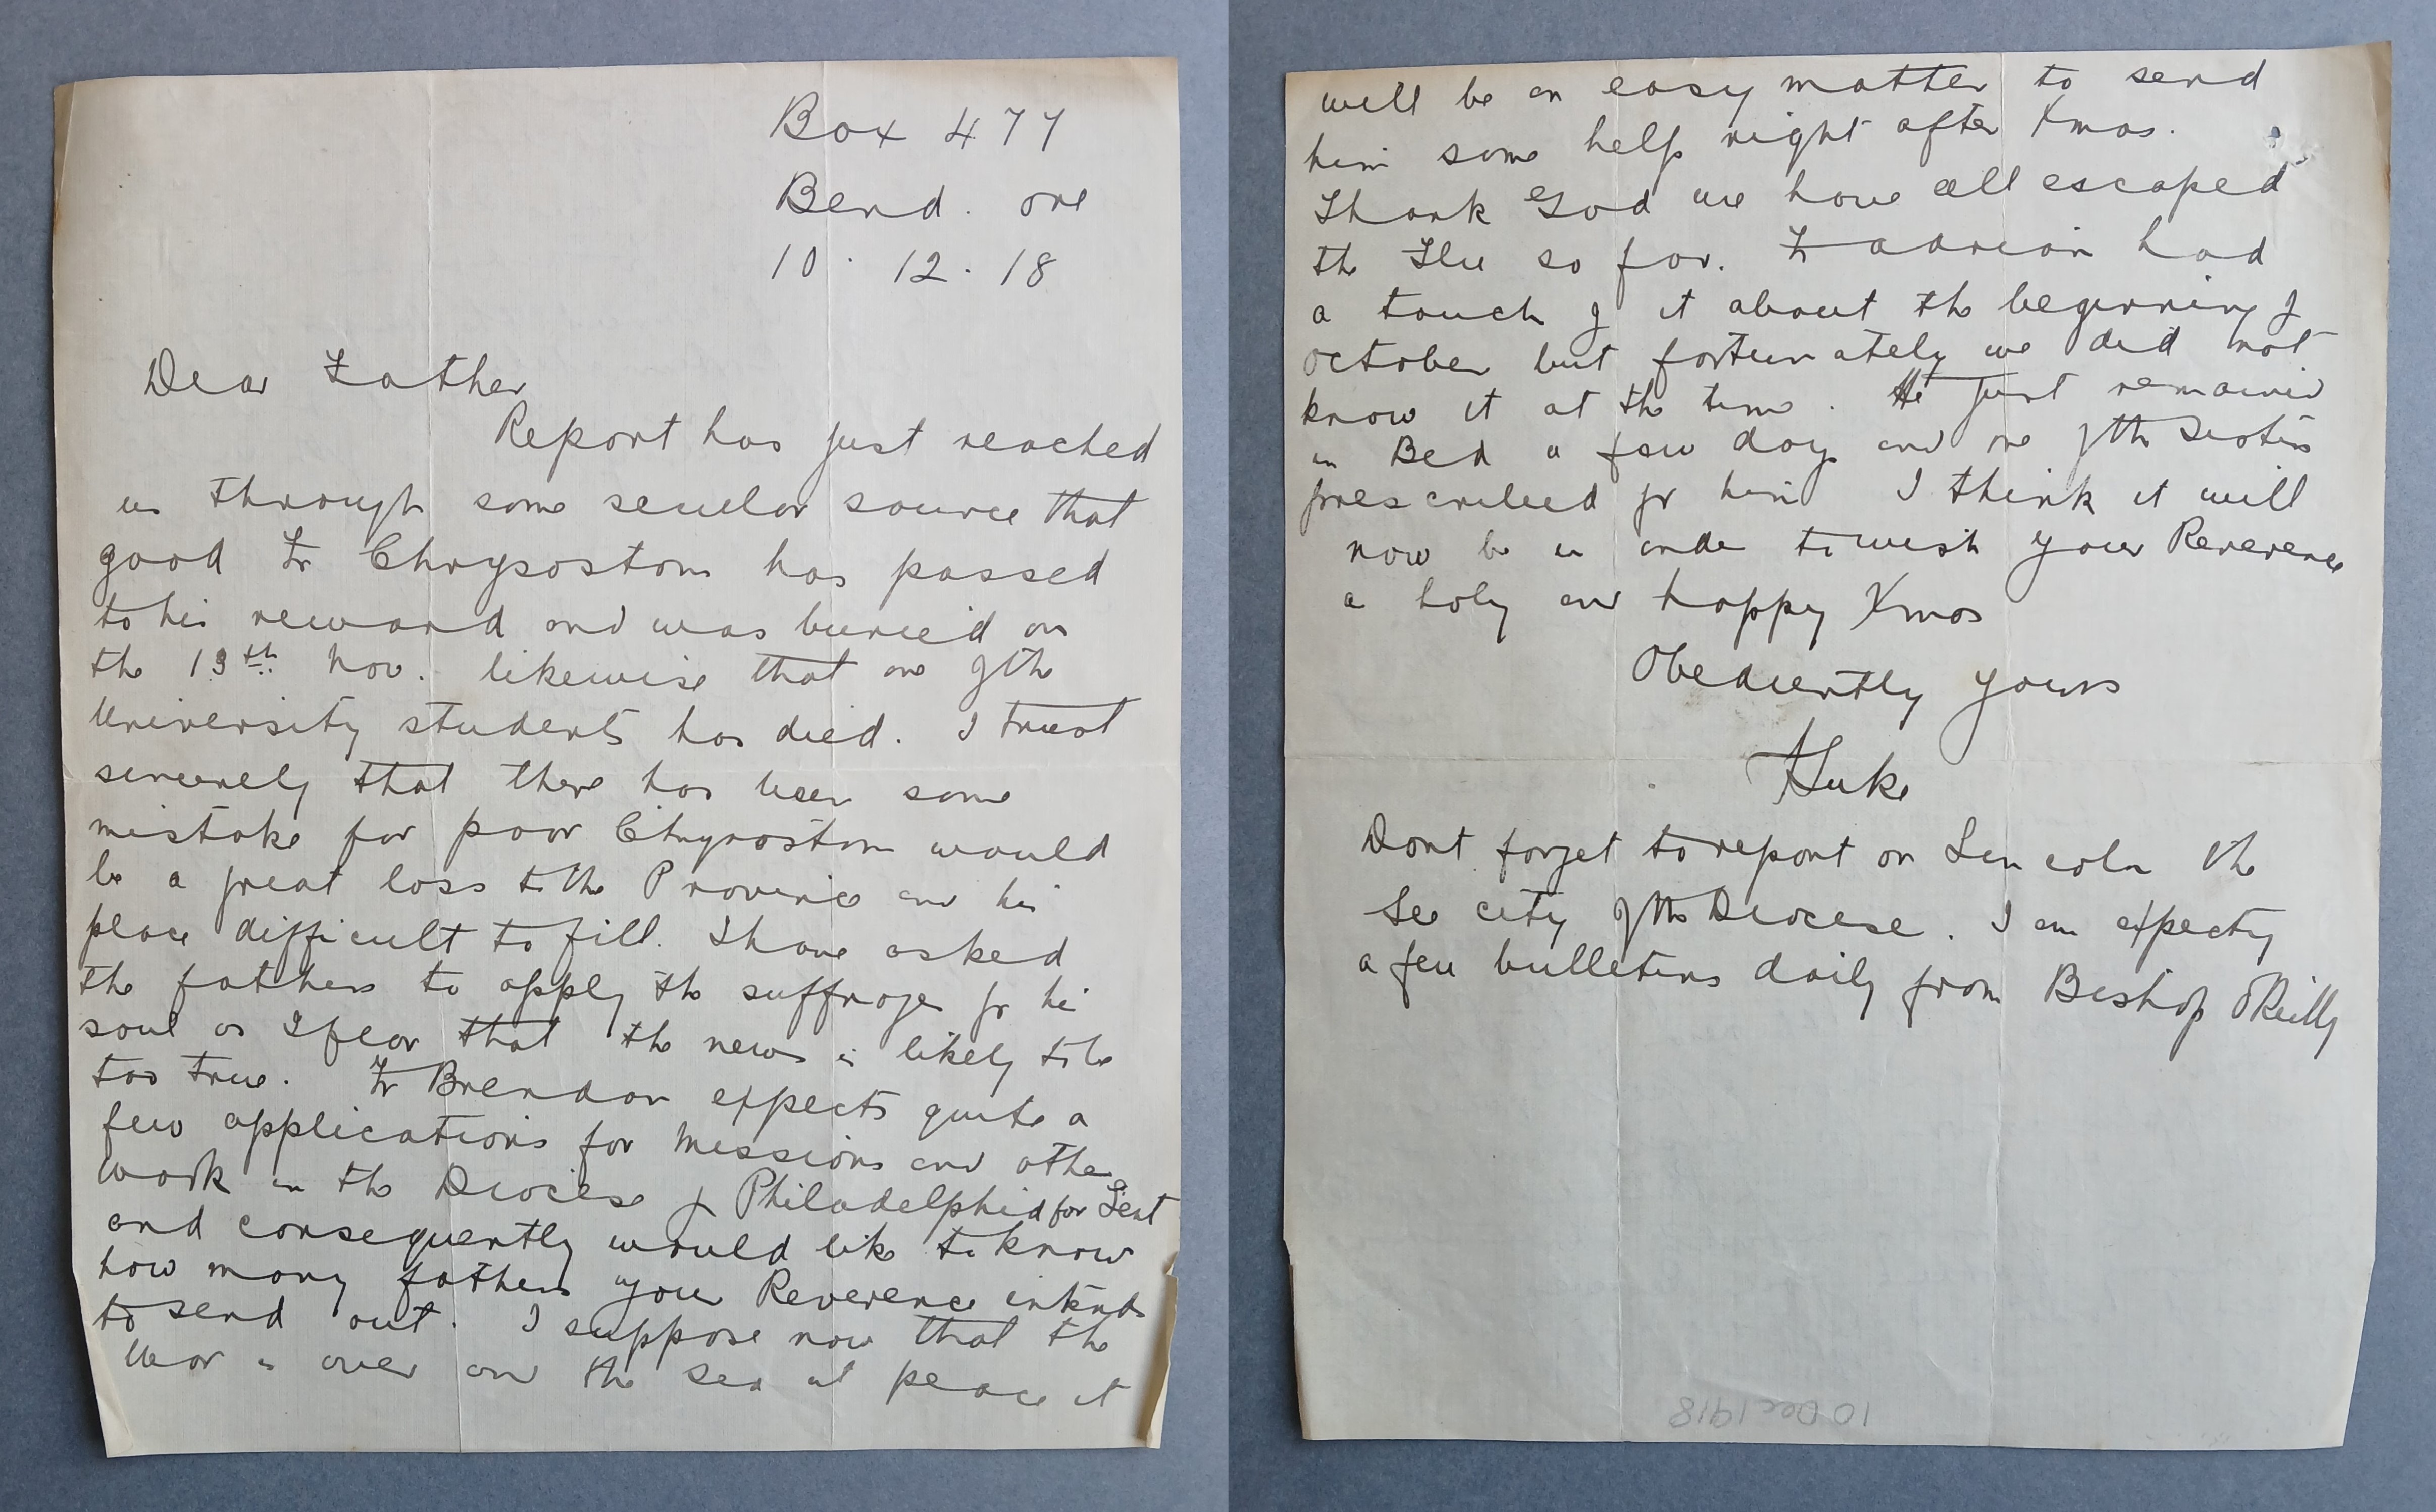 Box 477
Bend. Ore
10. 12. 18
Dear Father
Report has just reached
us through some secular source that
good Fr Chrysostom has passed
to his reward and was buried on
the 13th Nov. likewise that one of the
University students has died. I trust
sincerely that there has been some
mistake for poor Chrysostom would
be a great loss to the Province and his
place difficult to fill. I have asked
the fathers to apply the suffrages for his
soul as I fear that the news is likely to be
too true. Fr Brendan expects quite a
few applications for Missions and other
work in the Diocese of Philadelphia for Lent
and consequently would like to know
how many fathers your Reverence intends
to send out. I suppose now that the
War is over and the sea at peace it
will be an easy matter to send
him some help right after Xmas.
Thank God we have all escaped
the Flu so far. Fr Adrian had
a touch of it about the beginning of
October but fortunately we did not
know it at the time. He just remained
in Bed a few days and one of the Sisters
prescribed for him I think it will
now be in order to wish your Reverence
a holy and happy Xmas
Obediently yours
Luke
Dont forget to report on Lincoln the
See city of the Diocese. I am expecting
a few bulletins daily from Bishop O'Reilly
10 Dec 1918